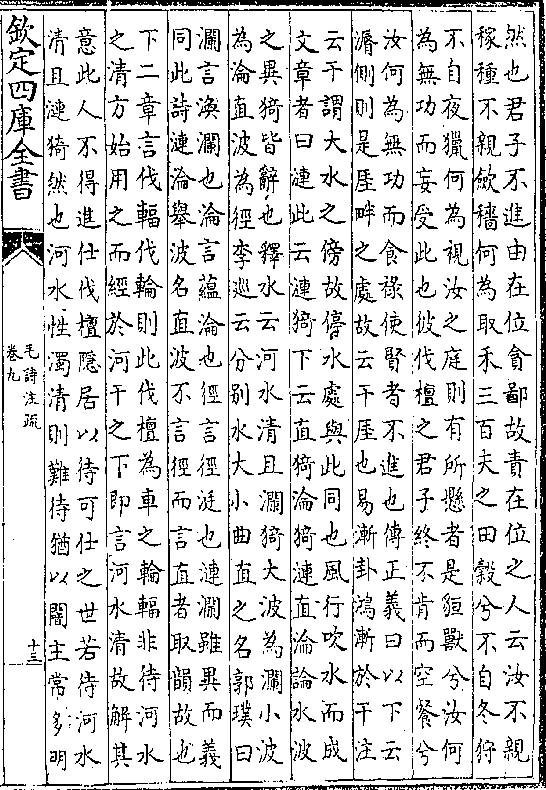 然也君子不進由在位貪鄙故責在位之人云汝不親
稼種不親斂穡何為取禾三百夫之田穀兮不自冬狩
不自夜獵何為視汝之庭則有所懸者是貆獸兮汝何
為無功而妄受此也彼伐檀之君子終不肯而空餐兮
汝何為無功而食祿使賢者不進也傳正義曰以下云
漘側則是厓畔之處故云干厓也易漸卦鴻漸於干注
云干謂大水之傍故停水處與此同也風行吹水而成
文章者曰漣此云漣猗下云直猗淪猗漣直淪論水波
之異猗皆辭也釋水云河水清且瀾猗大波為瀾小波
為淪直波為徑李巡云分别水大小曲直之名郭璞曰
瀾言渙瀾也淪言蘊淪也徑言徑涏也漣瀾雖異而義
同此詩漣淪舉波名直波不言徑而言直者取韻故也
下二章言伐輻伐輪則此伐檀為車之輪輻非待河水
之清方始用之而經於河干之下即言河水清故解其
意此人不得進仕伐檀隱居以待可仕之世若待河水
清且漣猗然也河水性濁清則難待猶以闇主常多明
欽定四庫全書
毛詩注疏
卷九
十三